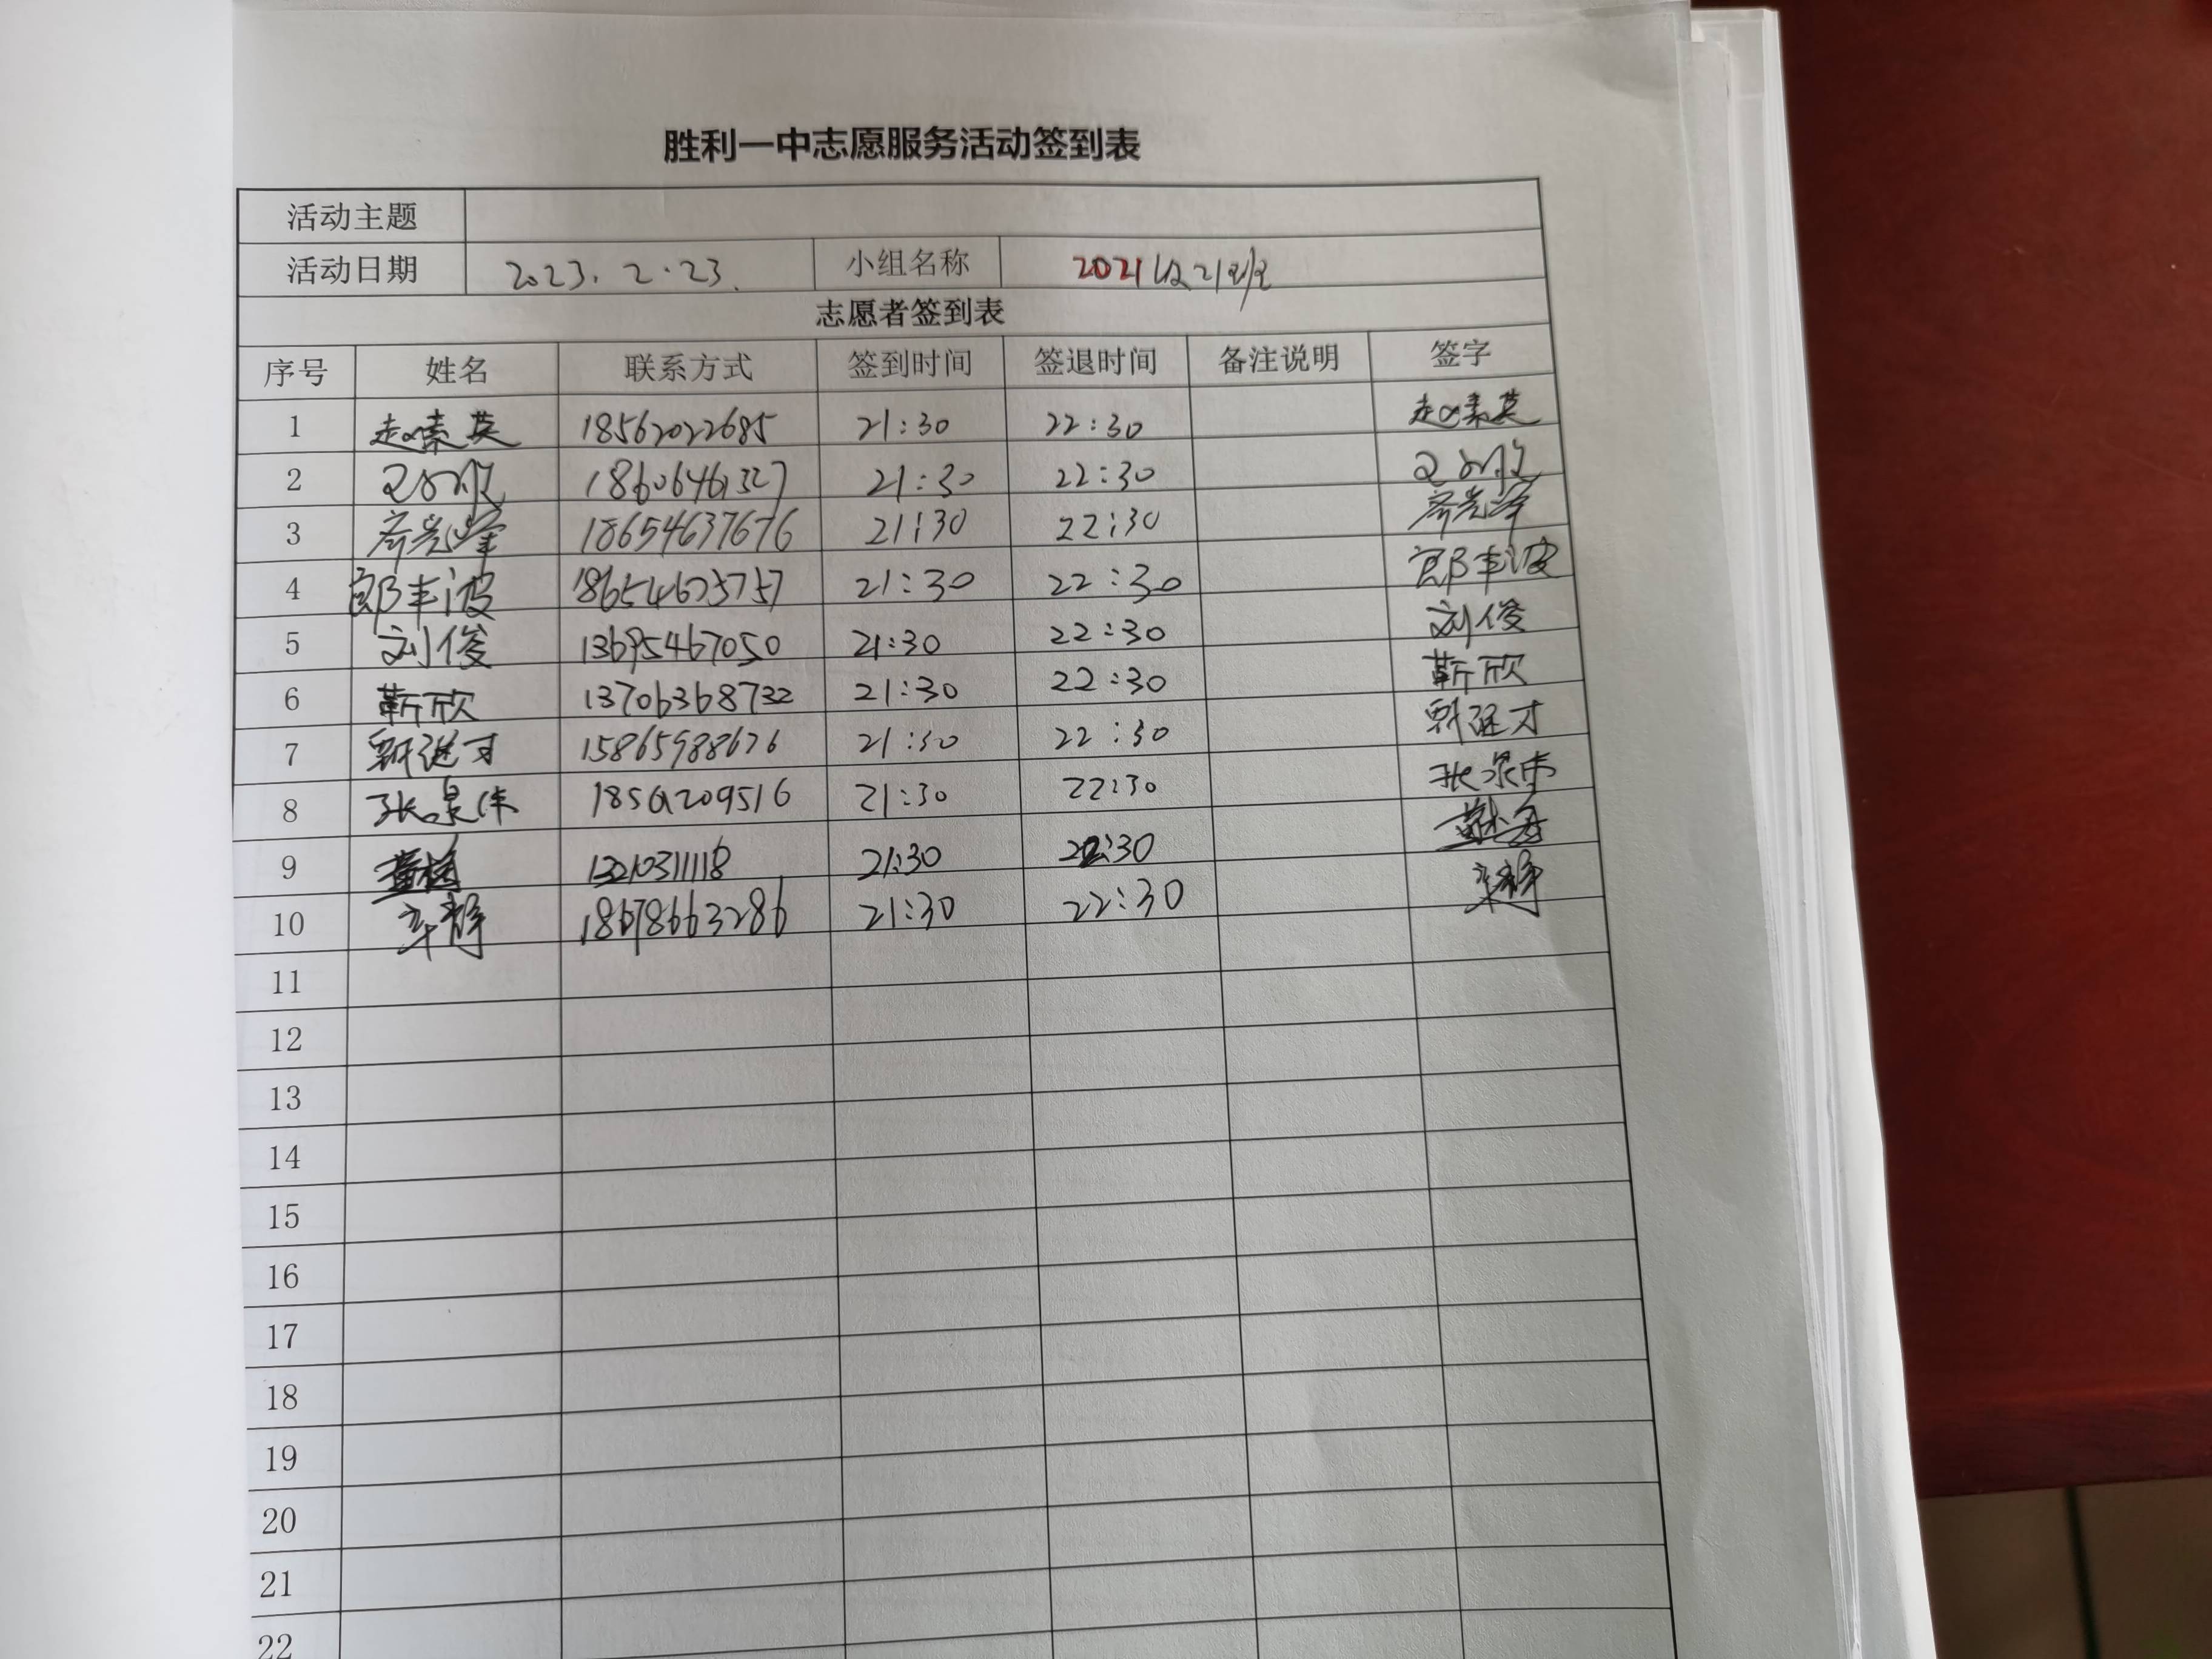 胜利一中志愿服务活动签到表
活动主题
活动日期 2023.2.23. 小组名称 2021级21班
志愿者签到表
序号 姓名 联系方式 签到时间 签退时间 备注说明 签字
1 赵素英 18562022685 21:30 22:30 赵素英
2 18606461327 21:30 22:30
3 齐光峰 18654637676 21:30 22:30 齐光峰
4 郎丰波 18654623757 21:30 22:30 郎丰波
5 刘俊 13695467050 21:30 22:30 刘俊
6 靳欣 13706368732 21:30 22:30 靳欣
7 15865988626 21:30 22:30
8 张泉伟 21:30 22:30 张泉伟
9 21:30 22:30
10 18678663286 21:30 22:30
11
12
13
14
15
16
17
18
19
20
21
22